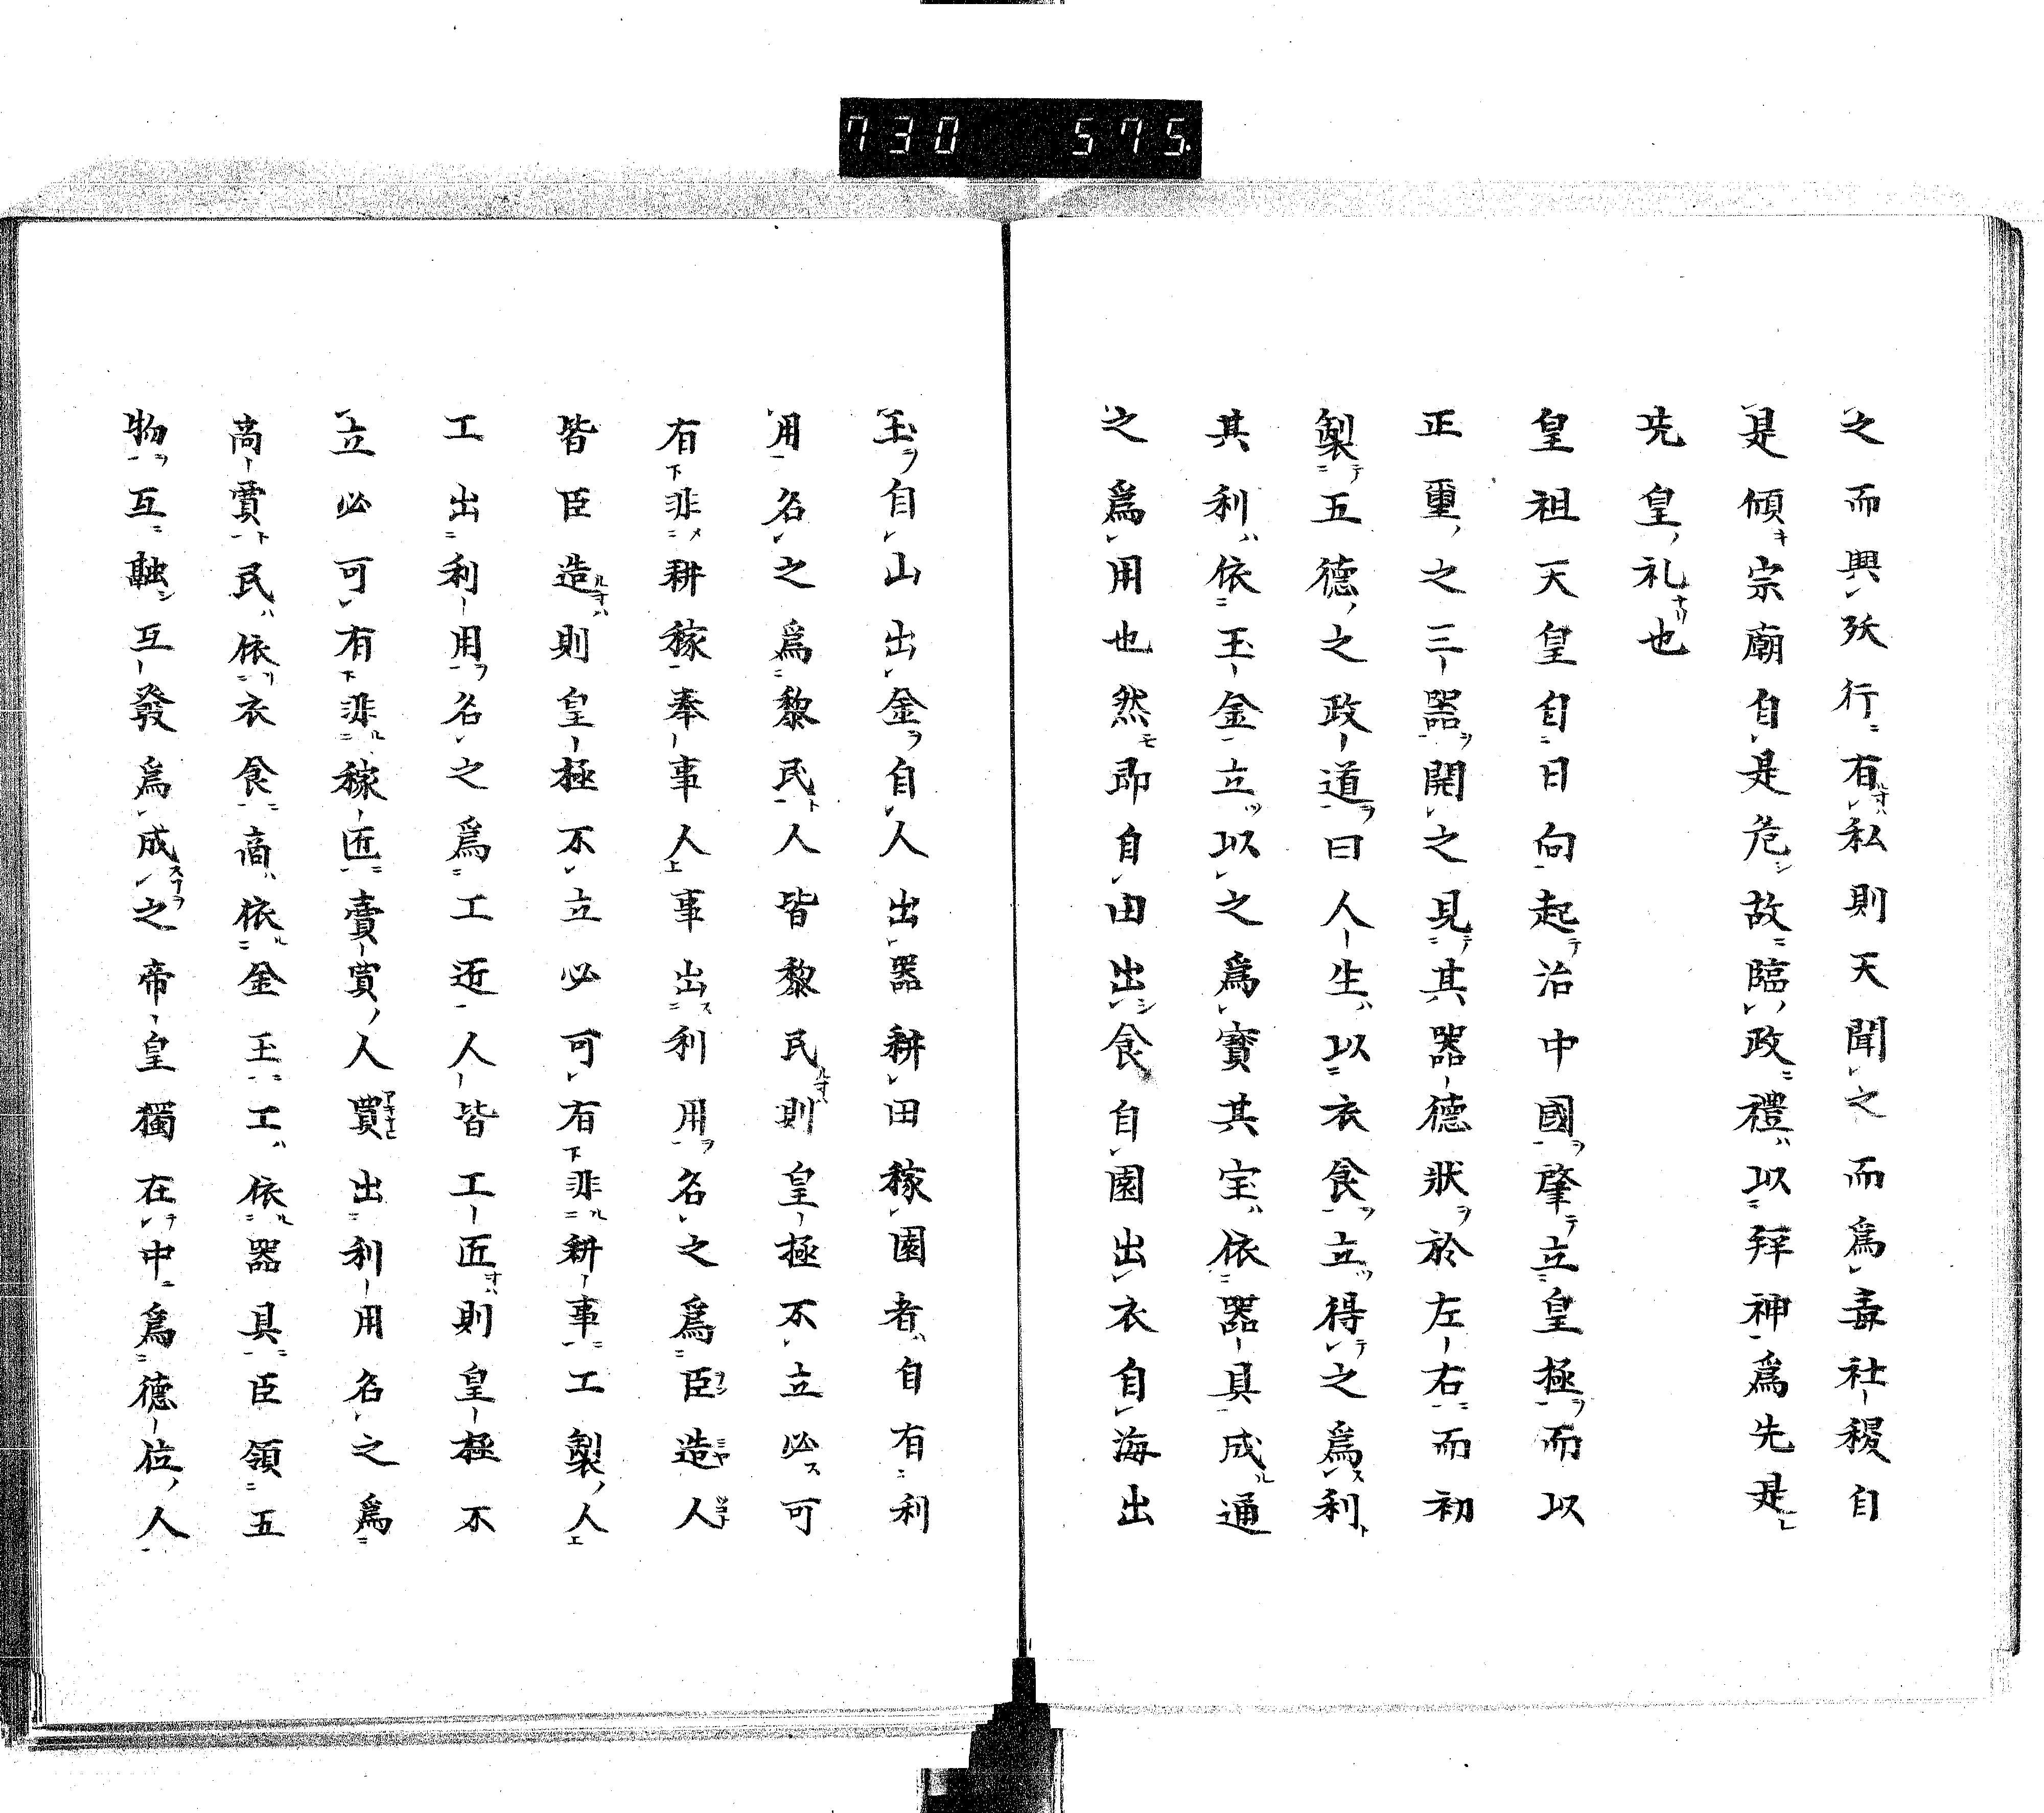 730 575.
之而興妖行有私則天聞之而為毒社稷自
是傾宗廟自是危故臨政禮以拜神為先是
先皇礼也
皇祖天皇自日向起治中國肇立皇極而以
正重之三器開之見其器德狀於左右而初
製五德之政道曰人生以衣食立得之為利
其利依玉金立以之為寳其宝依器具成通
之為用也然即自由出食自園出衣自海出
玉自山出金自人出器耕田稼園者自有利
用名之為黎民人皆黎民則皇極不立必可
有非耕稼奉事人事出利用名之為臣造人
皆臣造則皇極不立必可有非耕事工製人
工出利用名之為工匠人皆工匠則皇極不
立必可有非稼匠賣買人買出利用名之為
啇賣民依衣食啇依金玉工依器具臣領五
物互融互發為成之帝皇獨在中為德位人